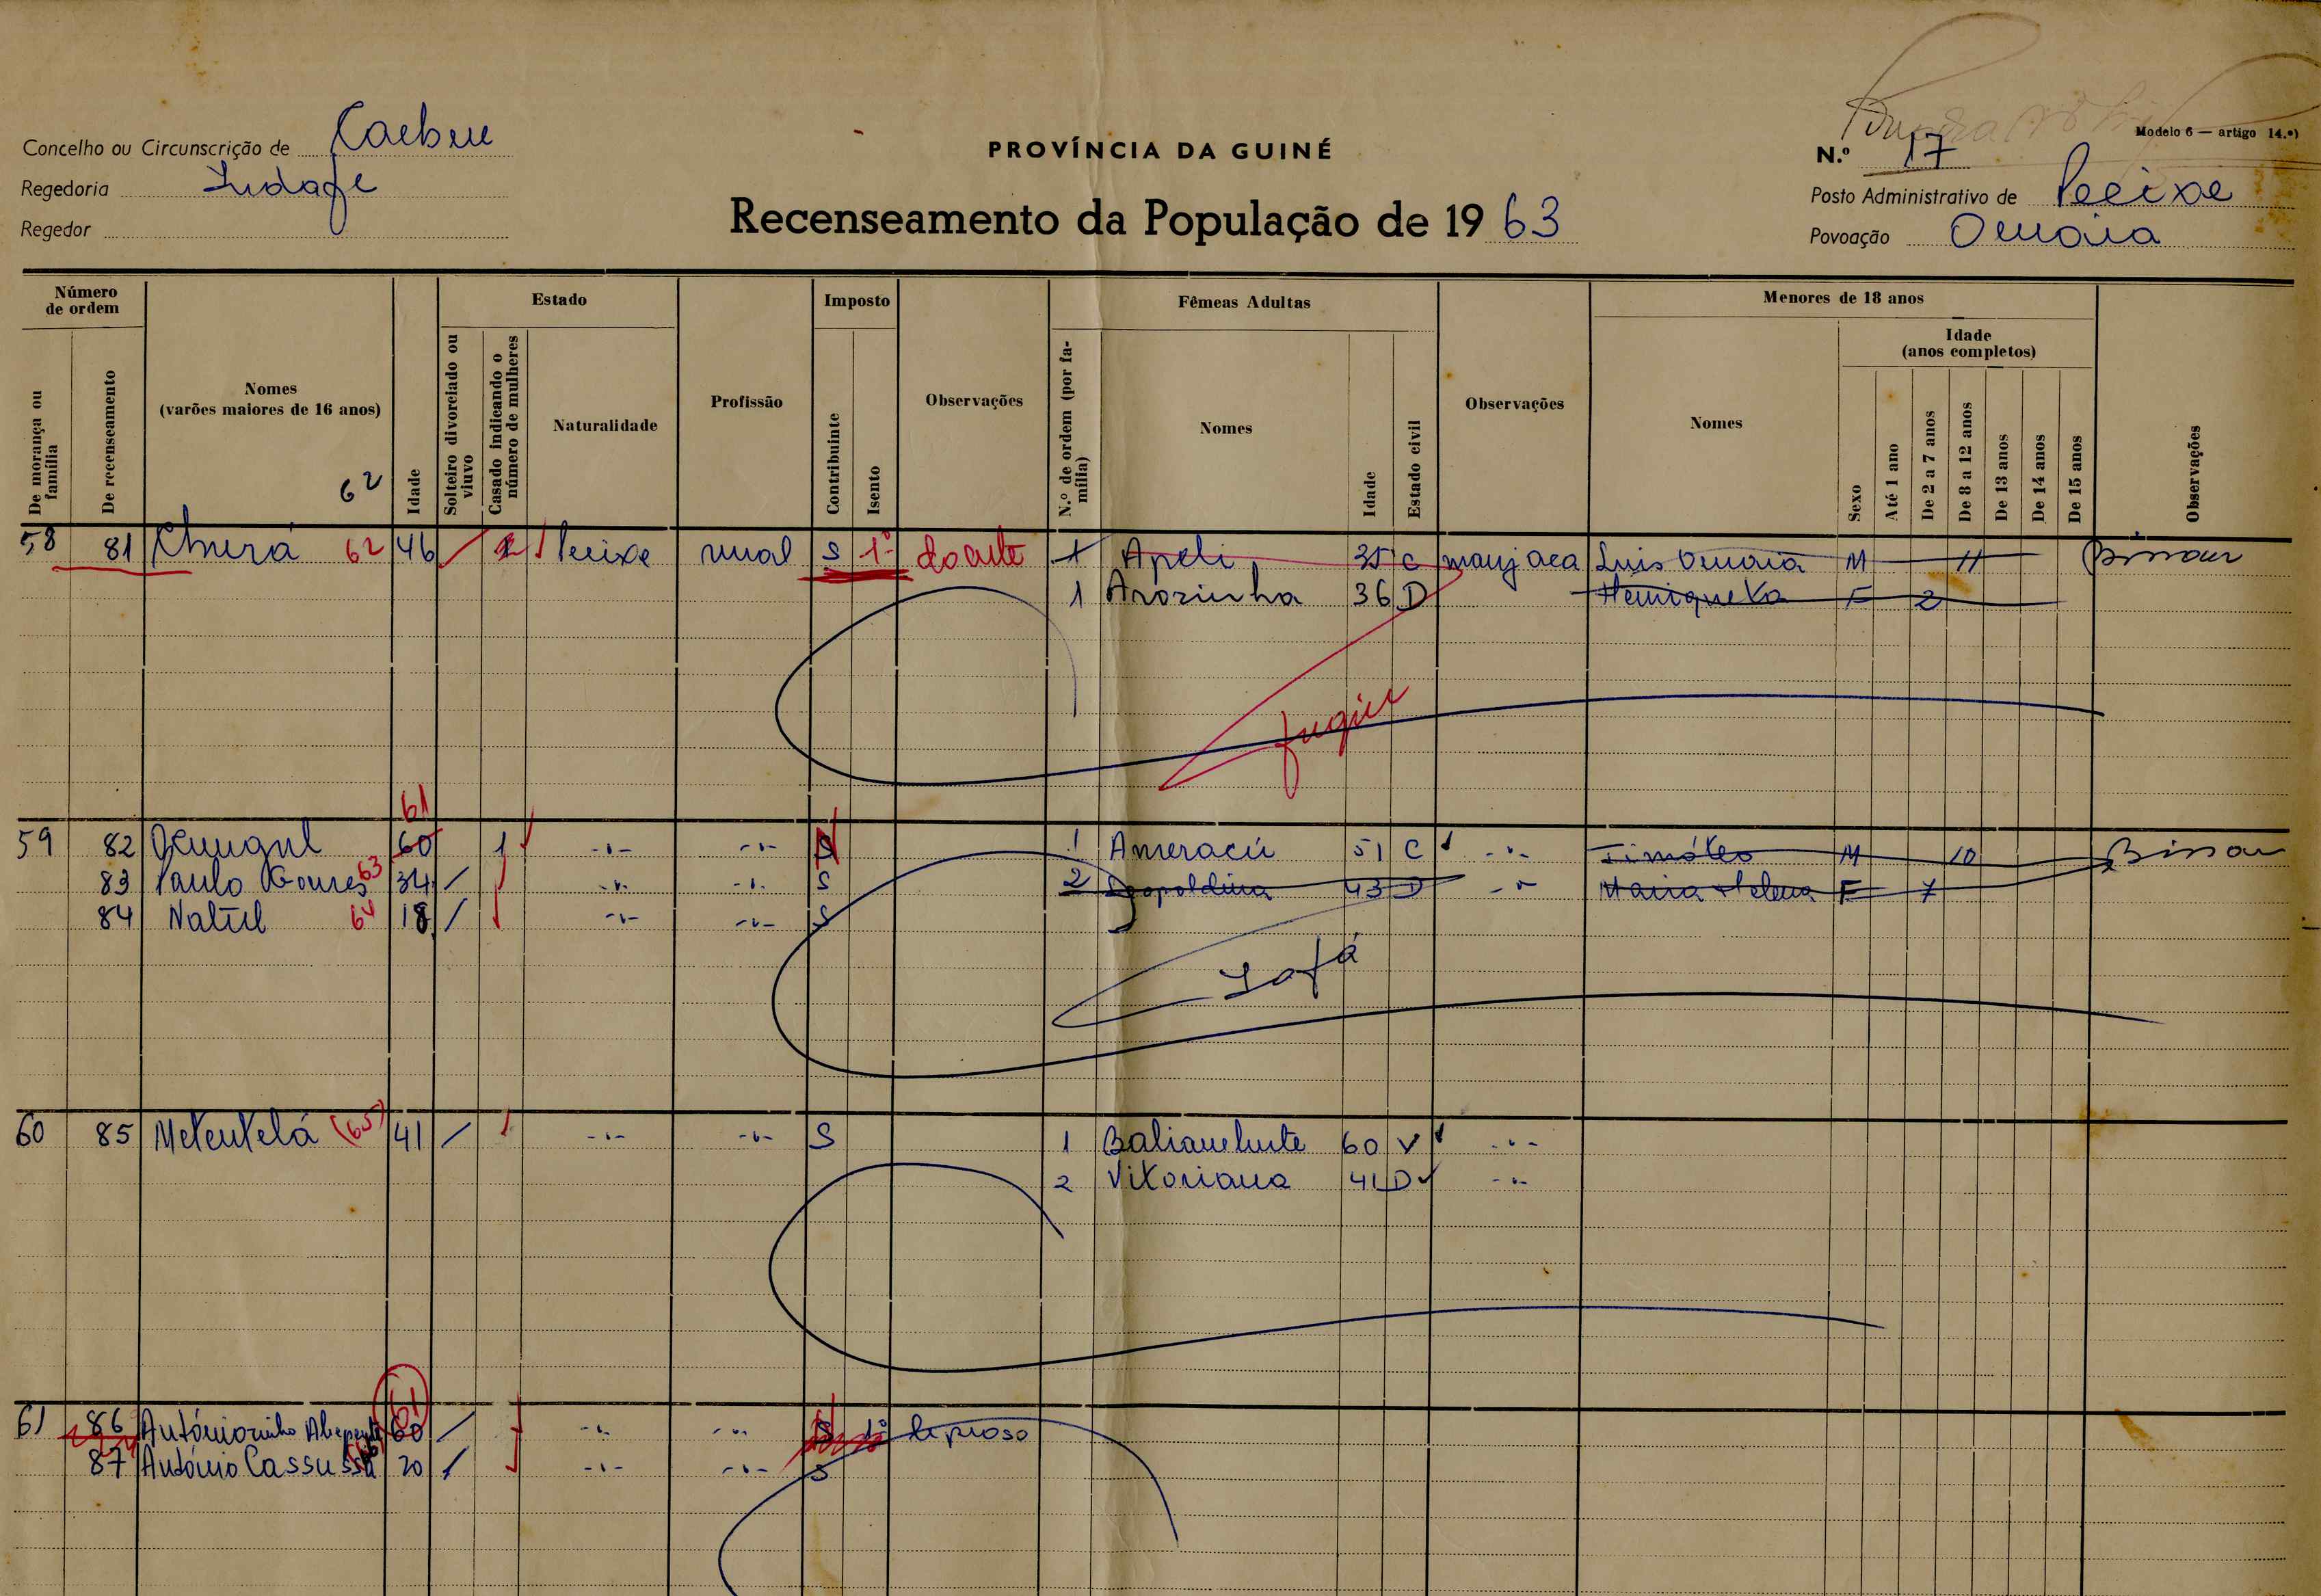 PROVÍNCIA DA GUINÉ
Modelo 6 — artigo 14.º)
Concelho ou Circunscrição de
N.º 17
Regedoria
Posto Administrativo de Pecixe
Regedor
Recenseamento da População de 19 63
Povoação
Número de ordem
Estado
Imposto
Fêmeas Adultas
Menores de 18 anos
Idade (anos completos)
De morança ou família
De recenseamento
Nomes (varões maiores de 16 anos)
62
Idade
Solteiro divorciado ou viuvo
Casado indicando o número de mulheres
Naturalidade
Profissão
Contribuinte
Isento
Observações
N.º de ordem (por família)
Nomes
Idade
Estado civil
Observações
Nomes
Sexo
Até 1 ano
De 2 a 7 anos
De 8 a 12 anos
De 13 anos
De 14 anos
De 15 anos
Observações
58 81 Churá 62 46 Pecixe rural S 1º doente 1 Apeli 35 C manjaca Luis M 11 Bissau
1 Arozinha 36 D Henriqueta F 2
fugiu
61
59 82 60 1 -"- -"- S 1 Ameracú 51 C -"- Timóteo M 10 Bissau
83 Paulo Gomes 63 34 -"- -"- S 2 Leopoldina 43 D -"- Maria Helena F 7
84 Natul 64 18 -"- -"- S
60 85 Metentelá (65) 41 -"- -"- S 1 60 V -"-
2 Vitoriana 41 D -"-
61
61 86 Antóniozinho 60 -"- -"- S 1º leproso
87 António Cassussá 20 -"- -"- S